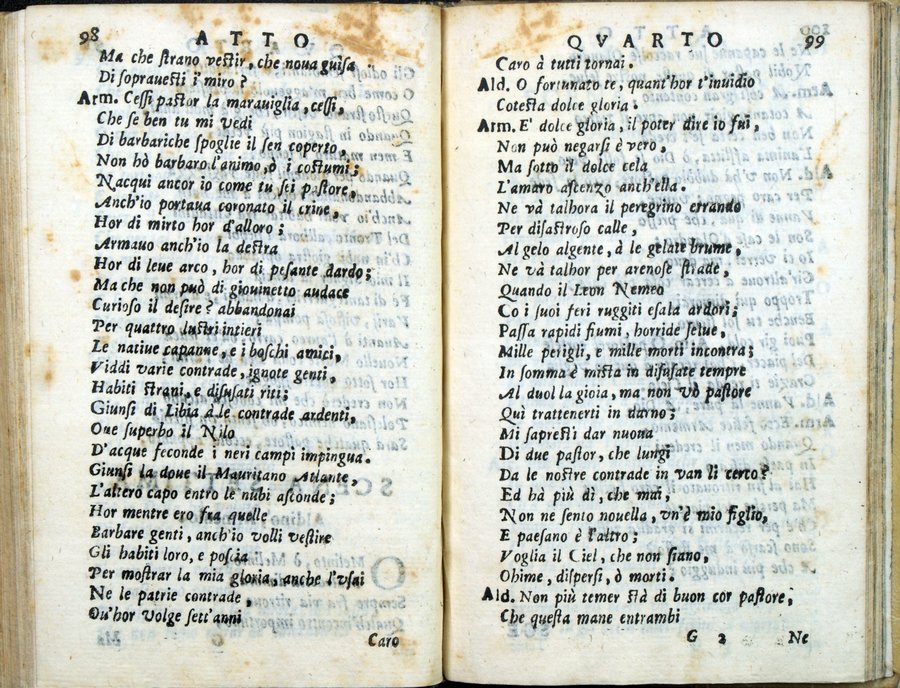 98 ATTO
Ma che strano vestir, che noua guisa
Di soprauesti i miro?
Arm. Cessi pastor la marauiglia, cessi,
Che se ben tu mi vedi
Di barbariche spoglie il sen coperto,
Non hò barbaro l'animo, ò i costumi;
Nacqui ancor io come tu sei pastore,
Anch'io portaua coronato il crine,
Hor di mirto hor d'alloro;
Armauo anch'io la destra
Hor di leue arco, hor di pesante dardo;
Ma che non può di giouinetto audace
Curioso il desire? abbandonai
Per quattro lustri intieri
Le natiue capanne, e i boschi amici,
Viddi varie contrade, ignote genti,
Habiti strani, e disusati riti;
Giunsi di Libia à le contrade ardenti,
Oue superbo il Nilo
D'acque feconde i neri campi impingua.
Giunsi la doue il Mauritano Atlante,
L'altero capo entro le nubi asconde;
Hor mentre ero fra quelle
Barbare genti, anch'io volli vestire
Gli habiti loro, e poscia
Per mostrar la mia gloria, anche l'vsai
Ne le patrie contrade,
Ou'hor volge sett'anni
Caro
QVARTO 99
Caro à tutti tornai.
Ald. O fortunato te, quant'hor t'inuidio
Cotesta dolce gloria.
Arm. E' dolce gloria, il poter dire io fui,
Non può negarsi è vero,
Ma sotto il dolce cela
L'amaro assenzo anch'ella.
Ne và talhora il peregrino errando
Per disastroso calle,
Al gelo algente, à le gelate brume,
Ne và talhor per arenose strade,
Quando il Leon Nemeo
Co i suoi feri ruggiti esala ardori;
Passa rapidi fiumi, horride selue,
Mille perigli, e mille morti incontra;
In somma è mista in disusate tempre
Al duol la gioia, ma non vò pastore
Quì trattenerti in darno;
Mi sapresti dar nuoua
Di due pastor, che lungi
Da le nostre contrade in van li cerco?
Ed hà più dì, che mai,
Non ne sento nouella, vn'è mio figlio,
E paesano è l'altro;
Voglia il Ciel, che non siano,
Ohime, dispersi, ò morti.
Ald. Non più temer stà di buon cor pastore,
Che questa mane entrambi
G 2 Ne